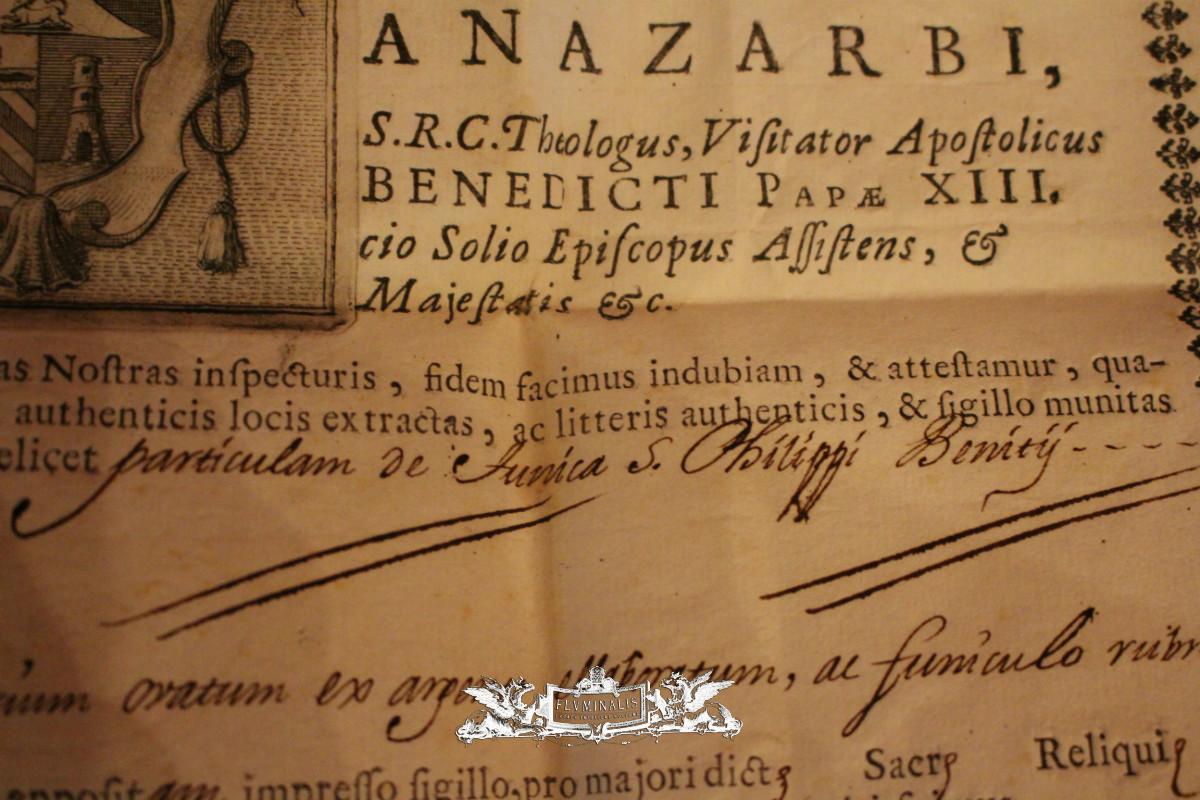 ANAZARBI,
S.R.C. Theologus, Viſitator Apoſtolicus
BENEDICTI PAPÆ XIII.
cio Solio Epiſcopus Aſſiſtens, &
Majeſtatis &c.
as Noſtras inſpecturis, fidem facimus indubiam, & atteſtamur, qua-
authenticis locis extractas, ac litteris authenticis, & ſigillo munitas
elicet particulam de Tunica S. Philippi Benitij - - - -
ovatum ex elaboratum, ac funiculo rubr
appositam impreſſo ſigillo, pro majori dictę Sacrę Reliquię
FLVMINALIS